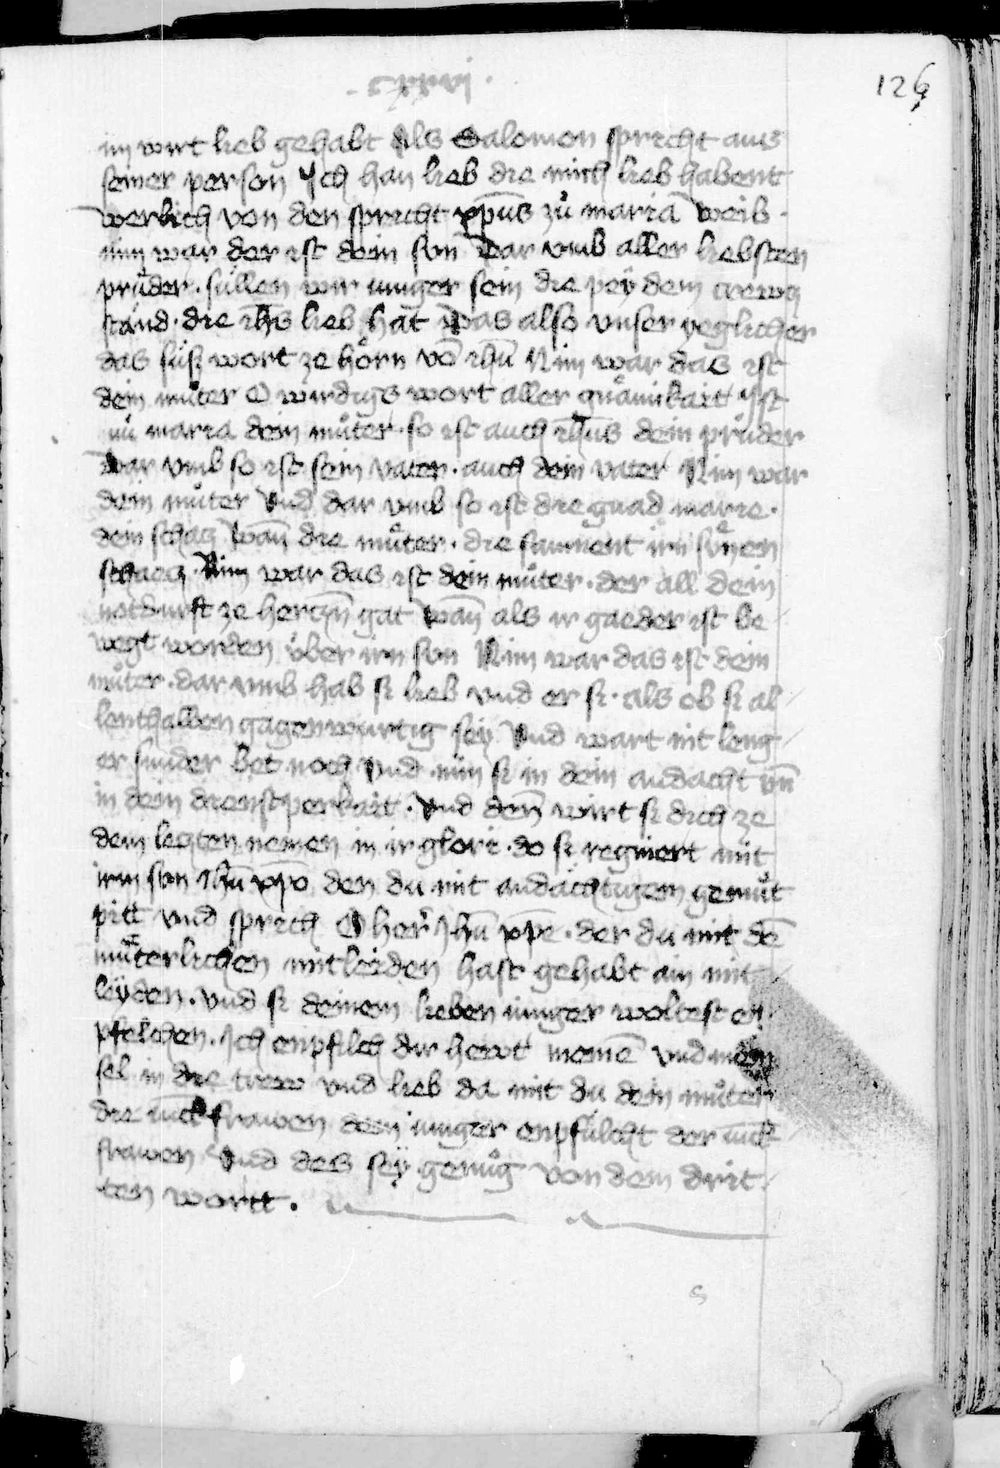 cxxvi
126
im wirt lieb gehabt Als Salomon spricht aus
seiner person Ich han lieb die mich lieb habent
werlich von den spricht xp̄us zů maria weib ·
nim war der ist dein sun Dar vmb aller liebsten
průder · sullen wir iunger sein die pey dem crewcz
stand · die ih̄s lieb hat Das also vnser yeglicher
das süß wort ze hörn vō ih̄u Nim war das ist
dein můter O wirdigs wort aller gnämikait Ist
nů maria dein můter · so ist auch ih̄us dein průder
Dar vmb so ist sein vater · auch dein vater Nim war
dein můter Vnd dar vmb so ist die gnad marie ·
dein schacz Wan̄ die můter · die samnent irn sünen
schaecz · Nim war das ist dein můter · der all dein
notdurft ze herczn̄ gat Wan̄ als ir gaeder ist be
wegt worden über irn sun Nim war das ist dein
můter · dar vmb hab si lieb vnd er si · als ob si al
lenthalben gagenwurtig sey Vnd wart nit leng
er sunder bet noch Vnd nim si in dein andacht vn̄
in dein dienstperkait · Vnd den̄ wirt si dich ze
dem leczten nemen in ir glori · do si regniert mit
irm sun ih̄u xp̄o den du mit andächtigem gemůt
pitt Vnd sprich O herr ih̄u xp̄e · der du mit dē
můterlichen mitleiden hast gehabt ain mit
leyden · Vnd si deinem lieben iunger woltest en
pfelchen · Ich enpfilch dir hewt meinē Vnd mein
sel in die trew vnd lieb da mit du dein můter
die iūckfrawen dein iunger enpfulcht der iūck
frawen Vnd des sey genůg von dem drit
ten wortt ·